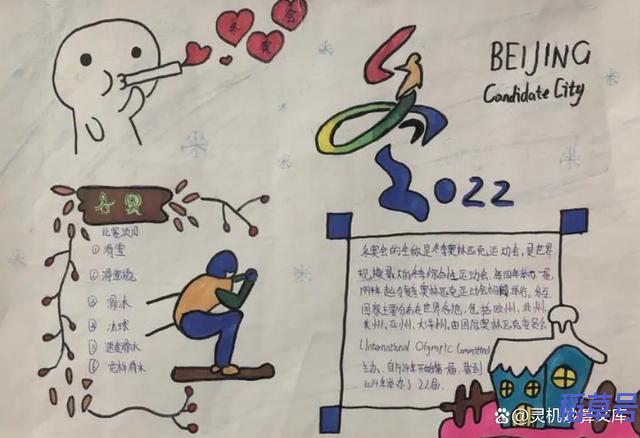 冬
奥
会
BEIJING
Candidate City
2022
冬奥
比赛项目
①滑雪
②滑雪橇
③滑冰
④冰球
⑤速度滑冰
⑥花样滑冰
冬奥会的全称是冬季奥林匹克运动会,是世界
规模最大的冬季综合性运动会,每四年举办一届
1994年起与夏季奥林匹克运动会相间举行,参与
国家主要分布在世界各地,包括欧洲,非洲,
美洲,亚洲,大洋洲,由国际奥林匹克委员会
(International Olympic Committee)
主办,自1924年开始第一届,截到
2014年举办了22届.
@灵机妙算文库